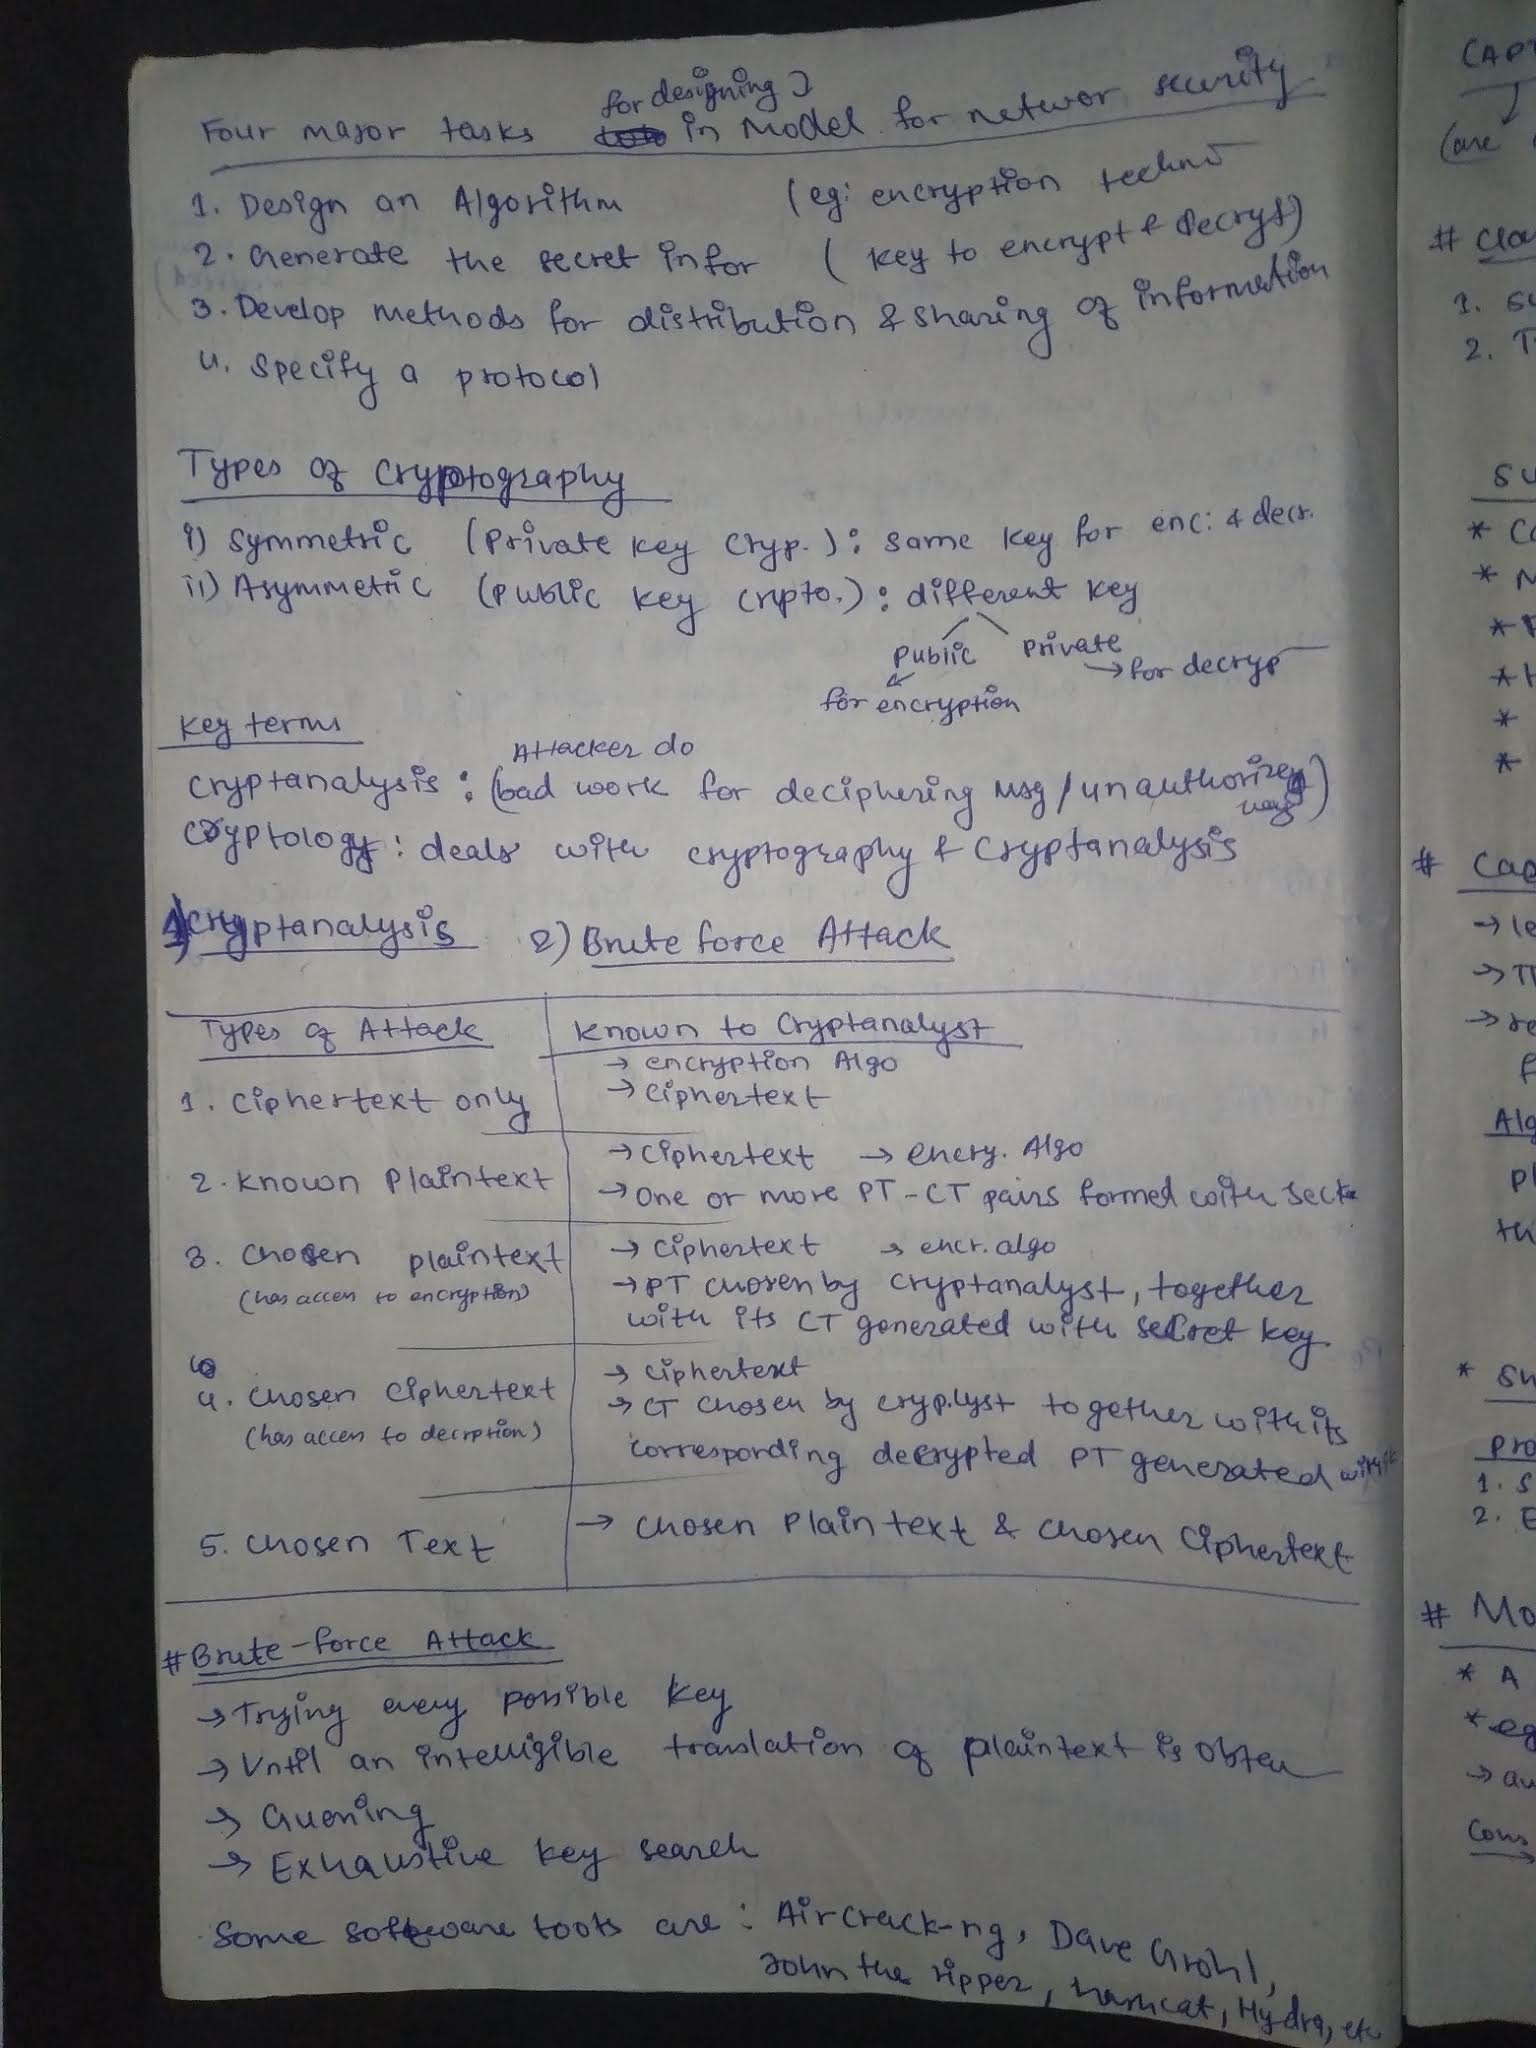 for designing
Four major tasks in Model for networ security
1. Design an Algorithm (eg: encryption techn
2. Generate the secret infor ( key to encrypt & Decryt)
3. Develop methods for distribution & sharing of information
4. Specify a protocol
Types of Cryptography
i) Symmetric (Private key Cryp.) : same key for enc: & decr.
ii) Asymmetric (public key crpto.) : different key
public private
→ for decryp
for encryption
Key terms
Attacker do
Cryptanalysis : (bad work for deciphering msg / unauthorized
way)
Cryptology : deals with cryptography & Cryptanalysis
1) Cryptanalysis 2) Brute force Attack
Types of Attack Known to Cryptanalyst
→ encryption Algo
1. Ciphertext only → Ciphertext
→ Ciphertext → encry. Algo
2. Known Plaintext → One or more PT-CT pairs formed with
3. Chosen plaintext → Ciphertext → encr. algo
(has access to encryption) → PT chosen by cryptanalyst, together
with its CT generated with secret key
→ Ciphertext
4. Chosen Ciphertext → CT chosen by cryp.lyst together with its
(has access to decrption) corresponding decrypted PT generated with
5. Chosen Text → Chosen Plain text & chosen Ciphertext
# Brute-force Attack
→ Trying every possible key
→ Until an intelligible translation of plaintext is obten
→ Guessing
→ Exhaustive key search
Some software tools are : Aircrack-ng, Dave Grohl,
John the ripper, hashcat, Hydra, etc
CAPT
(are
#
1.
2. T
SU
* Co
* N
*
*
*
*
#
→ le
→ Th
→ re
f
Alg
pl
th
* Sh
pro
1. S
2. E
# Mo
* A
* eg
→ au
Cons